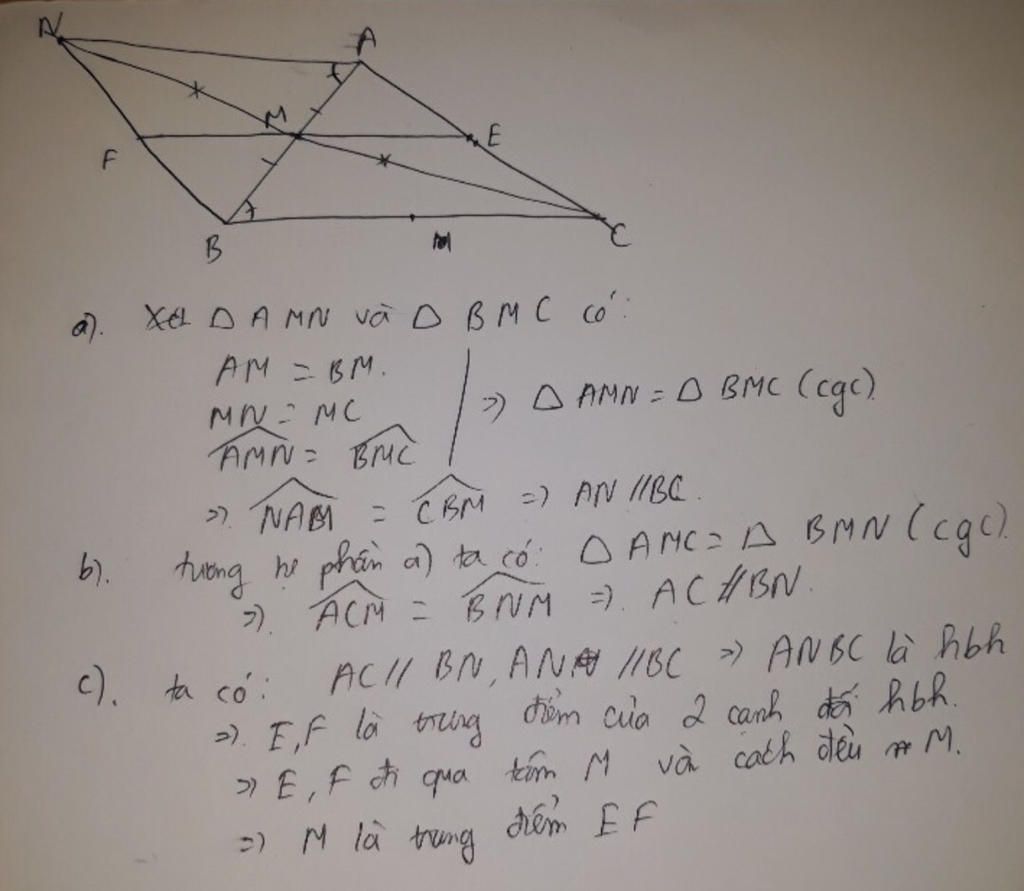 N
A
M
E
F
B
M
C
a). Xét △ AMN và △ BMC có:
AM = BM.
MN = MC ⇒ △ AMN = △ BMC (cgc)
\widehat{AMN} = \widehat{BMC}
⇒ \widehat{NAM} = \widehat{CBM} ⇒ AN // BC.
b). tương tự phần a) ta có: △ AMC = △ BMN (cgc).
⇒ \widehat{ACM} = \widehat{BNM} ⇒ AC // BN.
c). ta có: AC // BN, AN // BC ⇒ ANBC là hbh
⇒ E, F là trung điểm của 2 cạnh đối hbh.
⇒ E, F đi qua tâm M và cách đều M.
⇒ M là trung điểm EF